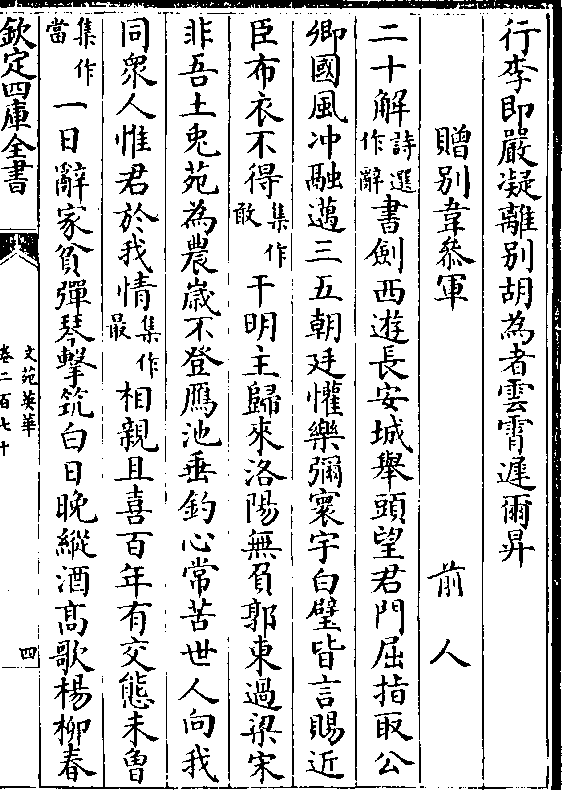 行李即嚴凝離別胡為者雲霄遲爾昇
贈別韋叅軍　前人
二十解詩選作辭書劍西遊長安城舉頭望君門屈指取公
卿國風冲融邁三五朝廷懽樂彌寰宇白璧皆言賜近
臣布衣不得集作敢干明主歸來洛陽無負郭東過梁宋
非吾土兎苑為農嵗不登鴈池垂釣心常苦世人向我
同衆人惟君於我情集作最相親且喜百年有交態未曾
集作當一日辭家貧彈琴擊筑白日晚縱酒髙歌楊柳春
欽定四庫全書
文苑英華
卷二百七十
四